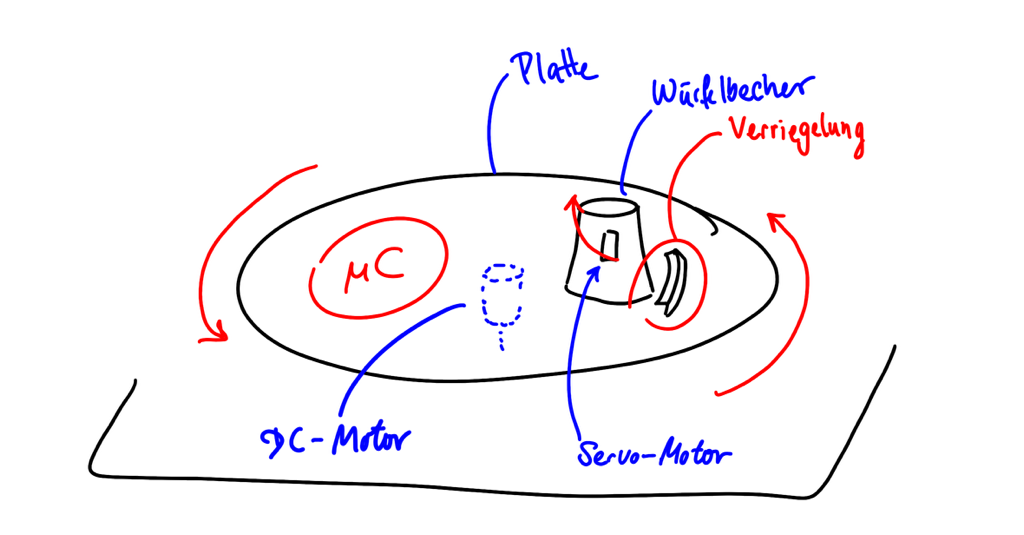 Platte
Würfelbecher
Verriegelung
µC
DC-Motor
Servo-Motor